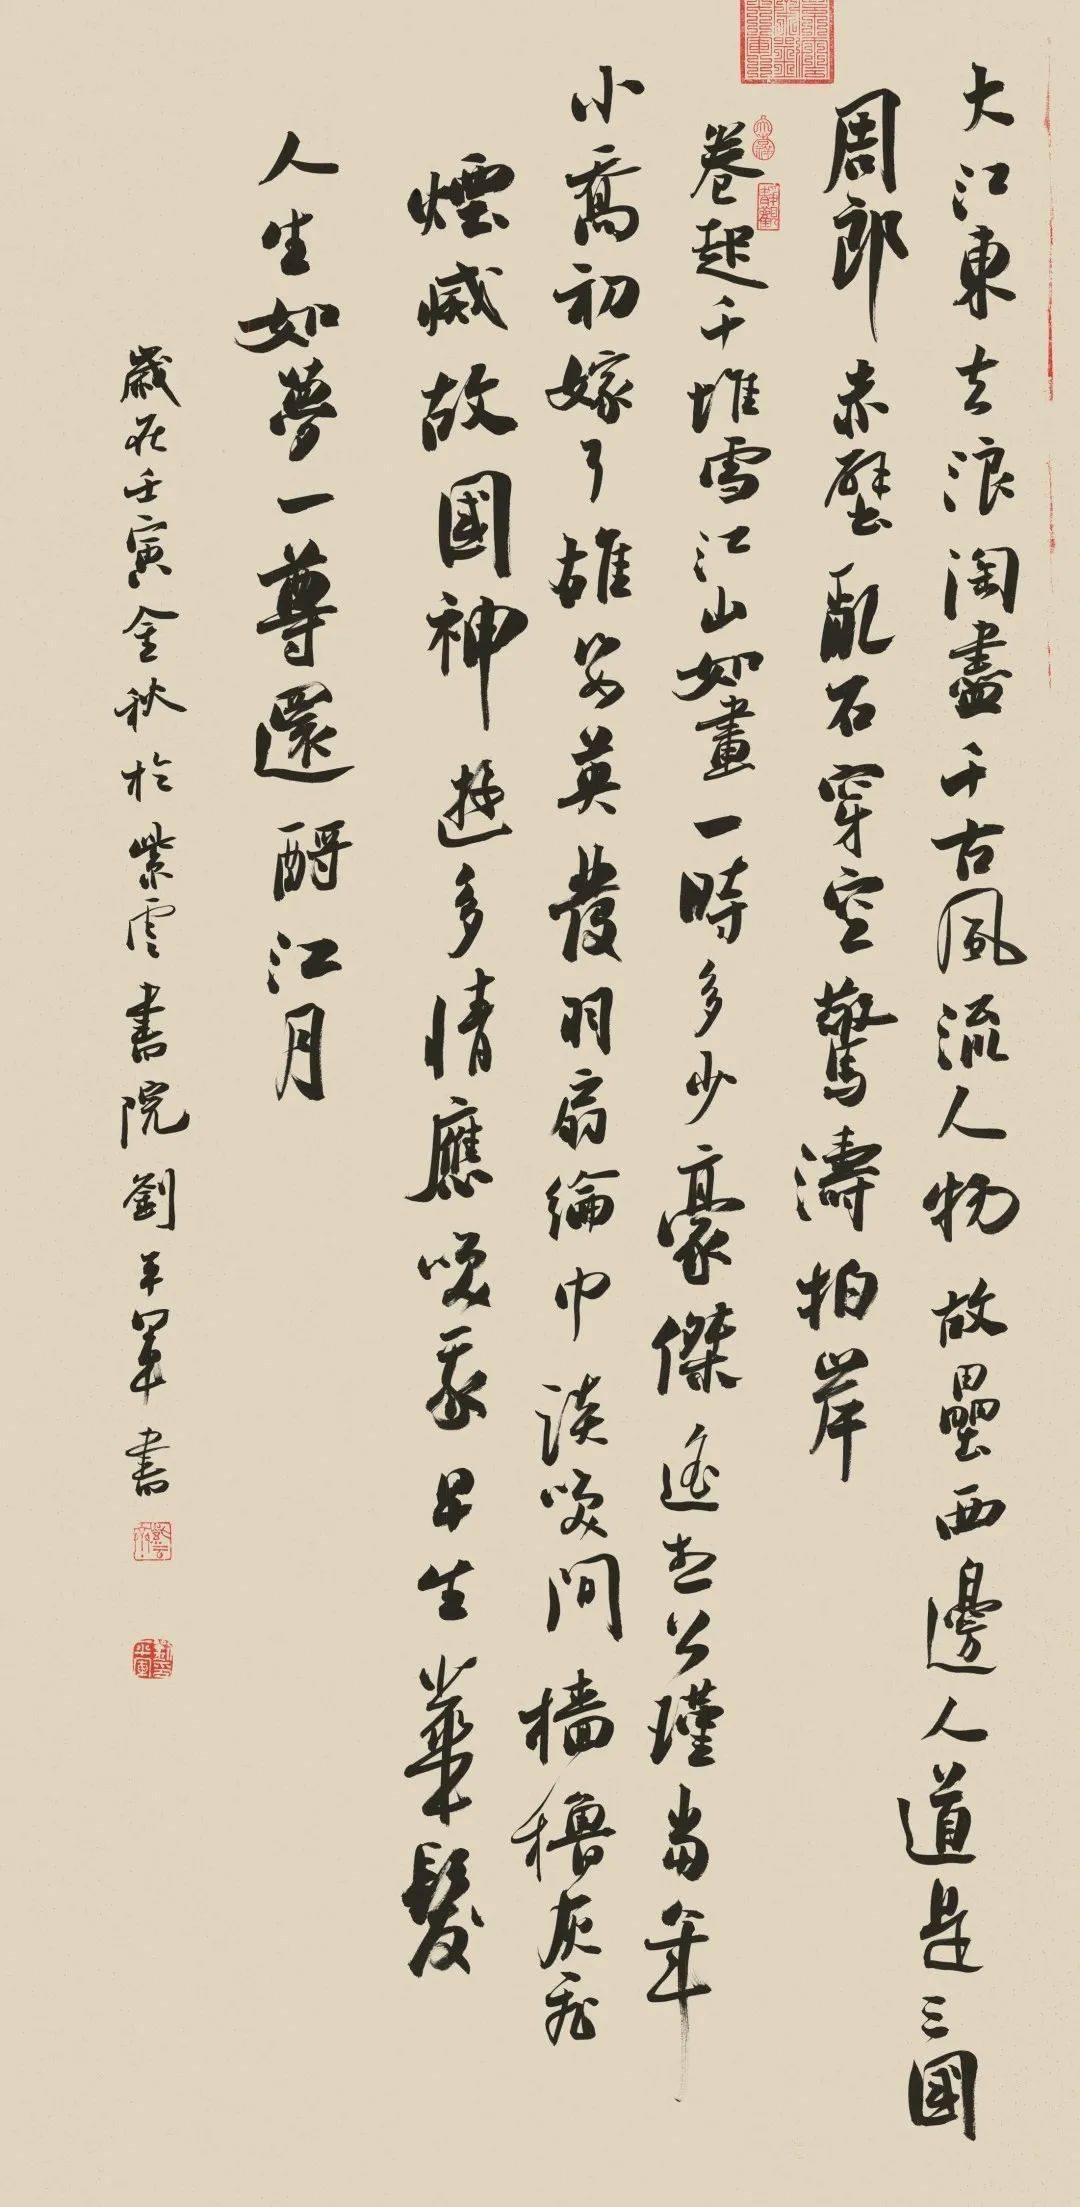 大江東去浪淘盡千古風流人物故壘西邊人道是三國
周郎赤壁亂石穿空驚濤拍岸
卷起千堆雪江山如畫一時多少豪傑遙想公瑾當年
小喬初嫁了雄姿英發羽扇綸巾談笑間檣櫓灰飛
煙滅故國神遊多情應笑我早生華髮
人生如夢一尊還酹江月
歲在壬寅金秋於紫雲書院劉平軍書
靜觀